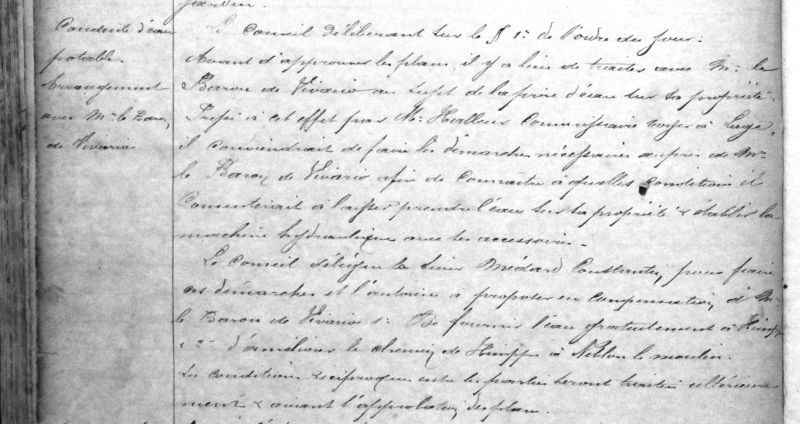 jardin.
Conduite d'eau
potable.
Arrangement
avec Mr le Baron
de Vivario
Le Conseil délibérant sur le § 1r de l'ordre du jour:
Avant d'approuver les plans, il y a lieu de traiter avec Mr le
Baron de Vivario au sujet de la prise d'eau sur sa propriété.
à cet effet par Mr Halleux Commissaire voyer à Liège,
il conviendrait de faire les démarches nécessaires auprès de Mr
le Baron de Vivario afin de connaître à quelles conditions il
Consentirait à laisser prendre l'eau sur sa propriété & établir la
machine hydraulique avec ses accessoires.
Le Conseil délègue le Sieur Médard Constantin, pour faire
ces démarches et l'autorise à proposer en compensation, à Mr
le Baron de Vivario 1° De fournir l'eau gratuitement à
& 2° d'améliorer le chemin de à Néblon le moulin.
Les conditions réciproques entre les parties seront traitées ultérieure
ment & avant l'approbation des plans.